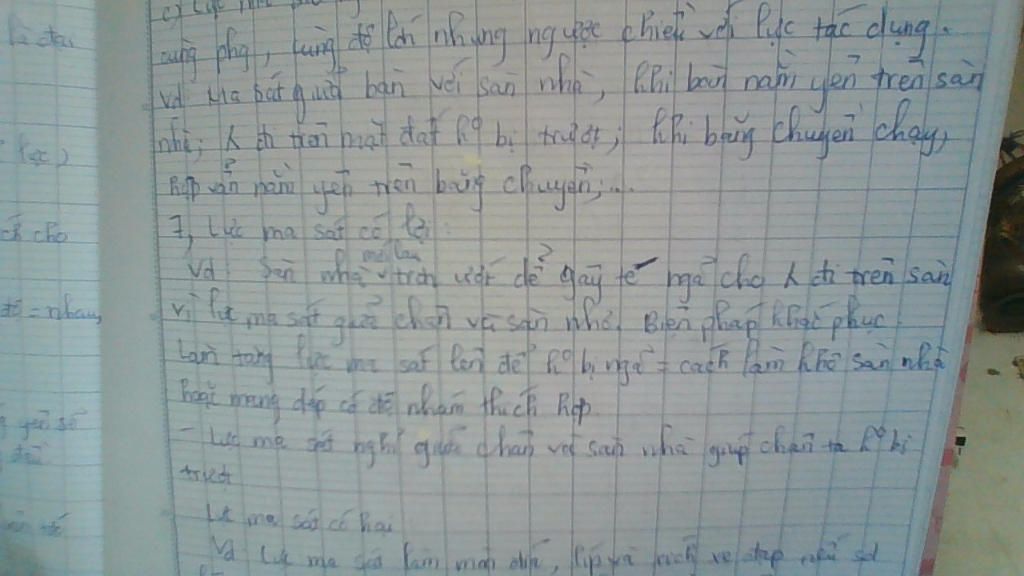 c) Lực ma sát
cùng phg, cùng độ lớn nhưng ngược chiều với lực tác dụng.
Vd Ma sát giữa bàn với sàn nhà, khi bàn nằm yên trên sàn
nhà; λ đi trên mặt đất k° bị trượt; khi băng chuyền chạy,
hộp vẫn nằm yên trên băng chuyền;...
7, Lực ma sát có lợi:
mới lau
Vd Sàn nhà trơn ướt dễ gây té ngã cho λ đi trên sàn
vì lực ma sát giữa chân và sàn nhỏ. Biện pháp khắc phục
Làm tăng lực ma sát lên để k° bị ngã = cách làm khô sàn nhà
hoặc mang dép có đế nhám thích hợp
- Lực ma sát nghỉ giữa chân với sàn nhà giúp chân ta k° bị
trượt
Lực ma sát có hại
Vd Lực ma sát làm mòn đĩa, líp và xích xe đạp nếu
ực)
cho
= nhau,
yếu số